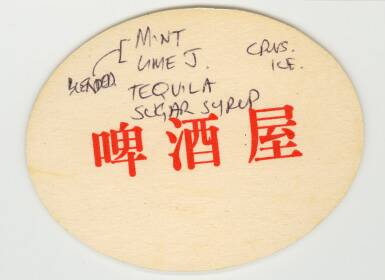 MINT
LIME J.
BLENDED
CRUS.
ICE.
TEQUILA
SUGAR SYRUP
啤酒屋